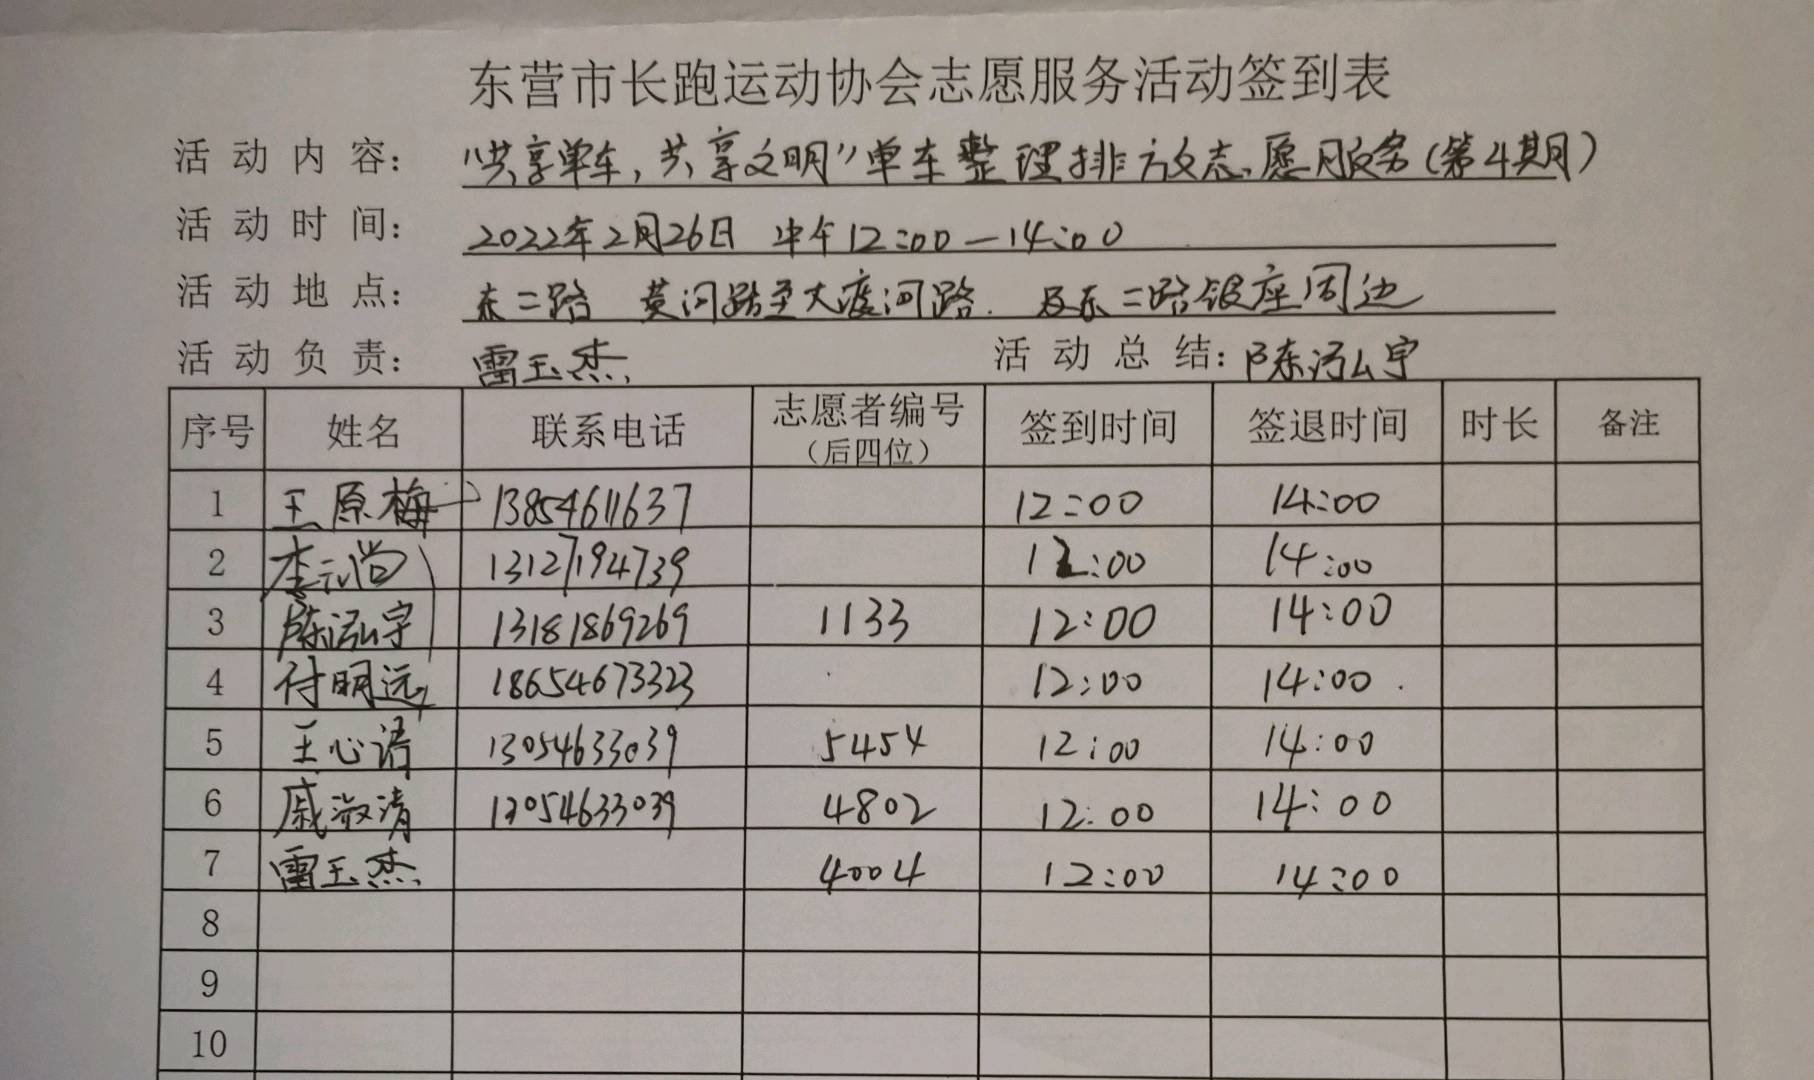 东营市长跑运动协会志愿服务活动签到表
活动内容：“共享单车，共享文明”单车整理排放志愿服务（第4期）
活动时间：2022年2月26日 中午12:00—14:00
活动地点：东二路 黄河路至大渡河路. 及东二路银座周边
活动负责：雷玉杰 活动总结：陈泓宇
序号 姓名 联系电话 志愿者编号（后四位） 签到时间 签退时间 时长 备注
1 王原梅 13854611637 12:00 14:00
2 李元尚 13127194739 12:00 14:00
3 陈泓宇 13181869269 1133 12:00 14:00
4 付明远 18654673323 12:00 14:00
5 王心语 13054633039 5454 12:00 14:00
6 戚淑清 13054633039 4802 12:00 14:00
7 雷玉杰 4004 12:00 14:00
8
9
10